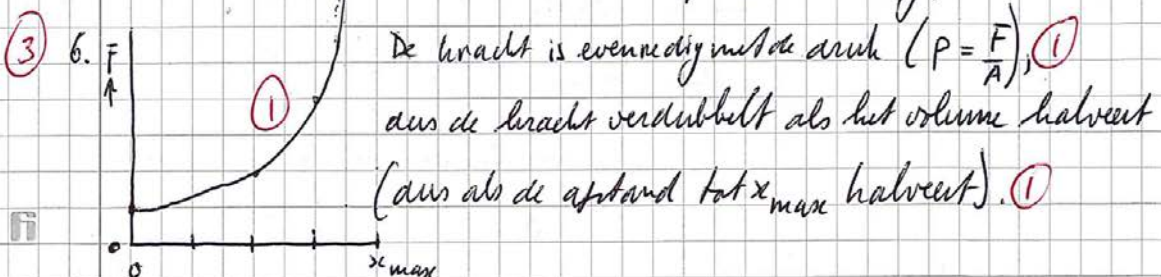 ③ 6. F ↑ De kracht is evenredig met de druk (P = F/A), ①
① dus de kracht verdubbelt als het volume halveert
(dus als de afstand tot x_max halveert). ①
0
0 x_max